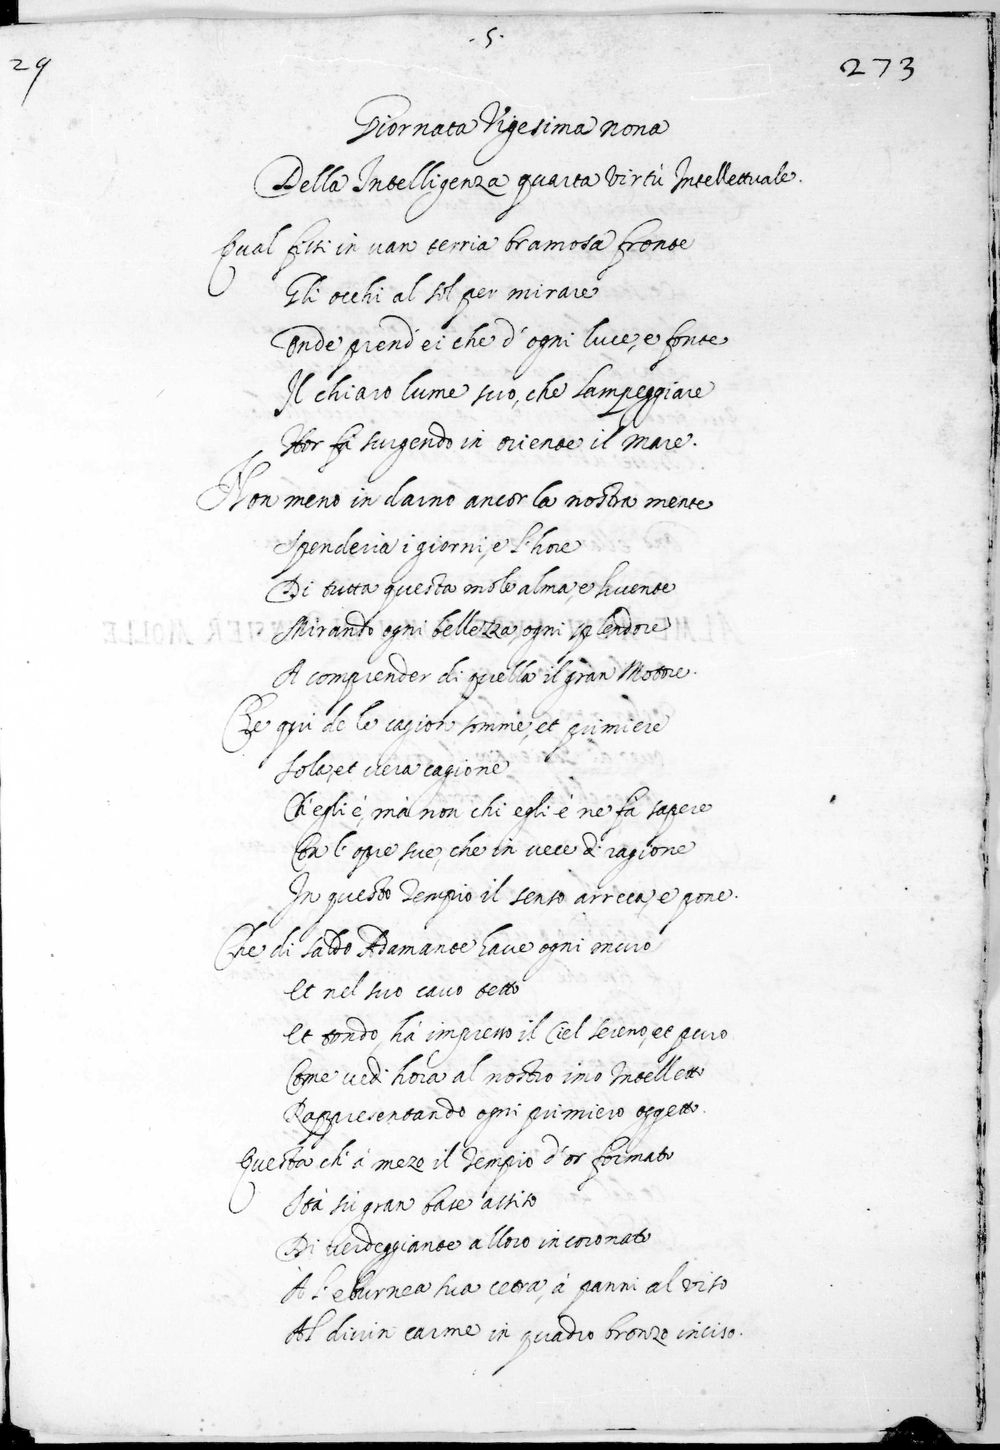 .5.
29
273
Giornata Vigesima nona
Della Intelligenza quarta virtù Intellettuale.
Qual fissi in van terria bramosa fronte
Gli occhi al sol per mirare
Onde prend'ei che d'ogni luce, e fonte
Il chiaro lume suo, che lampeggiare
Hor fà surgendo in oriente il mare.
Non meno in darno ancor la nostra mente
Spenderia i giorni, e l'hore
Di tutta questa mole alma, e lucente
Mirando ogni bellezza, ogni splendore
A comprender di quella il gran Motore.
Che qui de le cagion somme, et primiere
Sola, et vera cagione
Ch'egli è, mà non chi egli è ne fà sapere
Con l'opre sue, che in vece di ragione
In questo Tempio il senso arreca, e pone.
Che di saldo Adamante have ogni muro
Et nel suo cavo tetto
Et tondo, hà impresso il Ciel sereno, et puro
Come vedi hora al nostro imo Intelletto
Rappresentando ogni primiero oggetto.
Questa ch'à mezo il Tempio d'or formato
Stà sù gran base assiso
Di verdeggiante alloro incoronato
A l'eburnea sua cetra, à panni al viso
Al divin carme in quadro bronzo inciso.